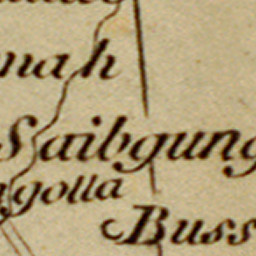 nah
Saibgung
golla
Buss